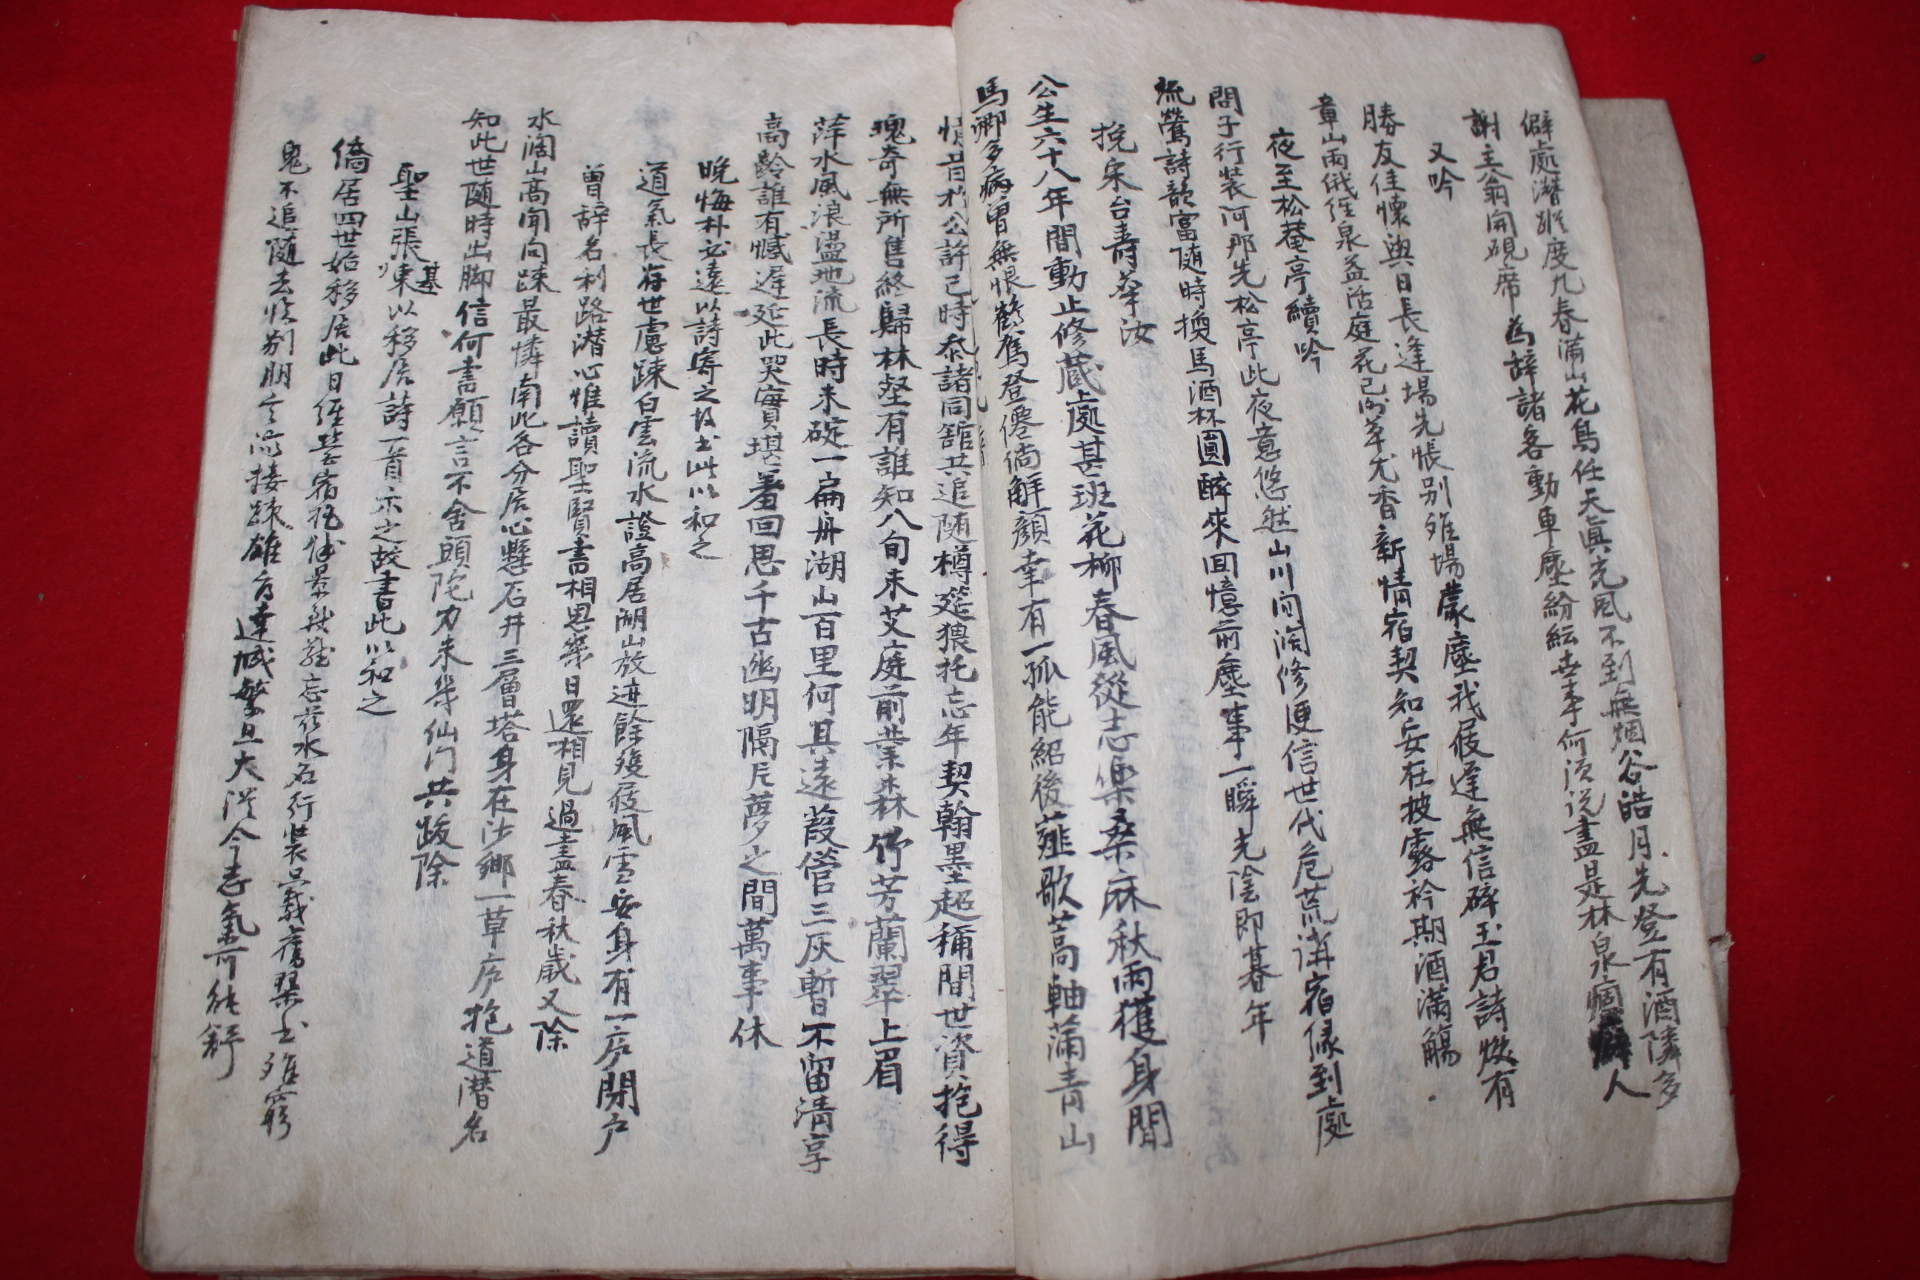 僻處潛蹤度九春滿山花鳥任天眞光風不到無烟谷皓月先登有酒隣多
謝主翁開硯席為辞諸客動車塵紛紜世事何須说盡是林泉痼癖人
又吟
勝友佳懷與日長逢場先悵别雉場蒙塵我屐逢無信碎玉君詩燬有
章山雨俄經泉益活庭花已謝草尤香新情宿契知安在披露衿期酒滿觴
夜至松菴亭續吟
問子行装何那先松亭此夜意悠然山川间阔修便信世代危荒講宿緣到處
流鶯詩韵富随時換馬酒杯圓醉來回憶前塵事一瞬光陰即暮年
挽宋台壽箤汝
公生六十八年間動止修蔵處甚班花柳春風從志樂桑麻秋雨獲身閒
馬卿多病曾無恨鶴馬登僊尚解顔幸有一孤能紹後薤歌蒿軸蒲青山
情昔於公許已時同舘共追随樽筵猥托忘年契翰墨超稱間世資抱得
瑰奇無所售終歸林壑有誰知八旬未艾庭前業森竹芳蘭翠上眉
萍水風浪盪地流長時未碇一扁舟湖山百里何其遠葭管三灰暫不留淸享
高齡誰有憾遲延此哭海堪羞回思千古幽明隔片夢之間萬事休
晩悔朴必遠以詩寄之故書此以和之
道氣長存世慮踈白雲流水證高居湖山放迹餘雙屐風雪安身有一庐閉户
曾辞名利路潜心惟讀聖賢書相思幾日還相見過盡春秋歲又除
水濶山高聞问踈最憐南北各分居心懸石井三層塔身在沙郷一草庐抱道潜名
知此世随時出脚信何書願言不舍頭陀力未幾仙门共跋除
聖山張東基以移居詩一首示之故書此以和之
僑居四世始移居此日經營宿抱攄景我難忘茲水石行装只載舊琴書雖窮
鬼不追随去惜别朋言際接踈雄方達城繁且大從今志氣可能舒